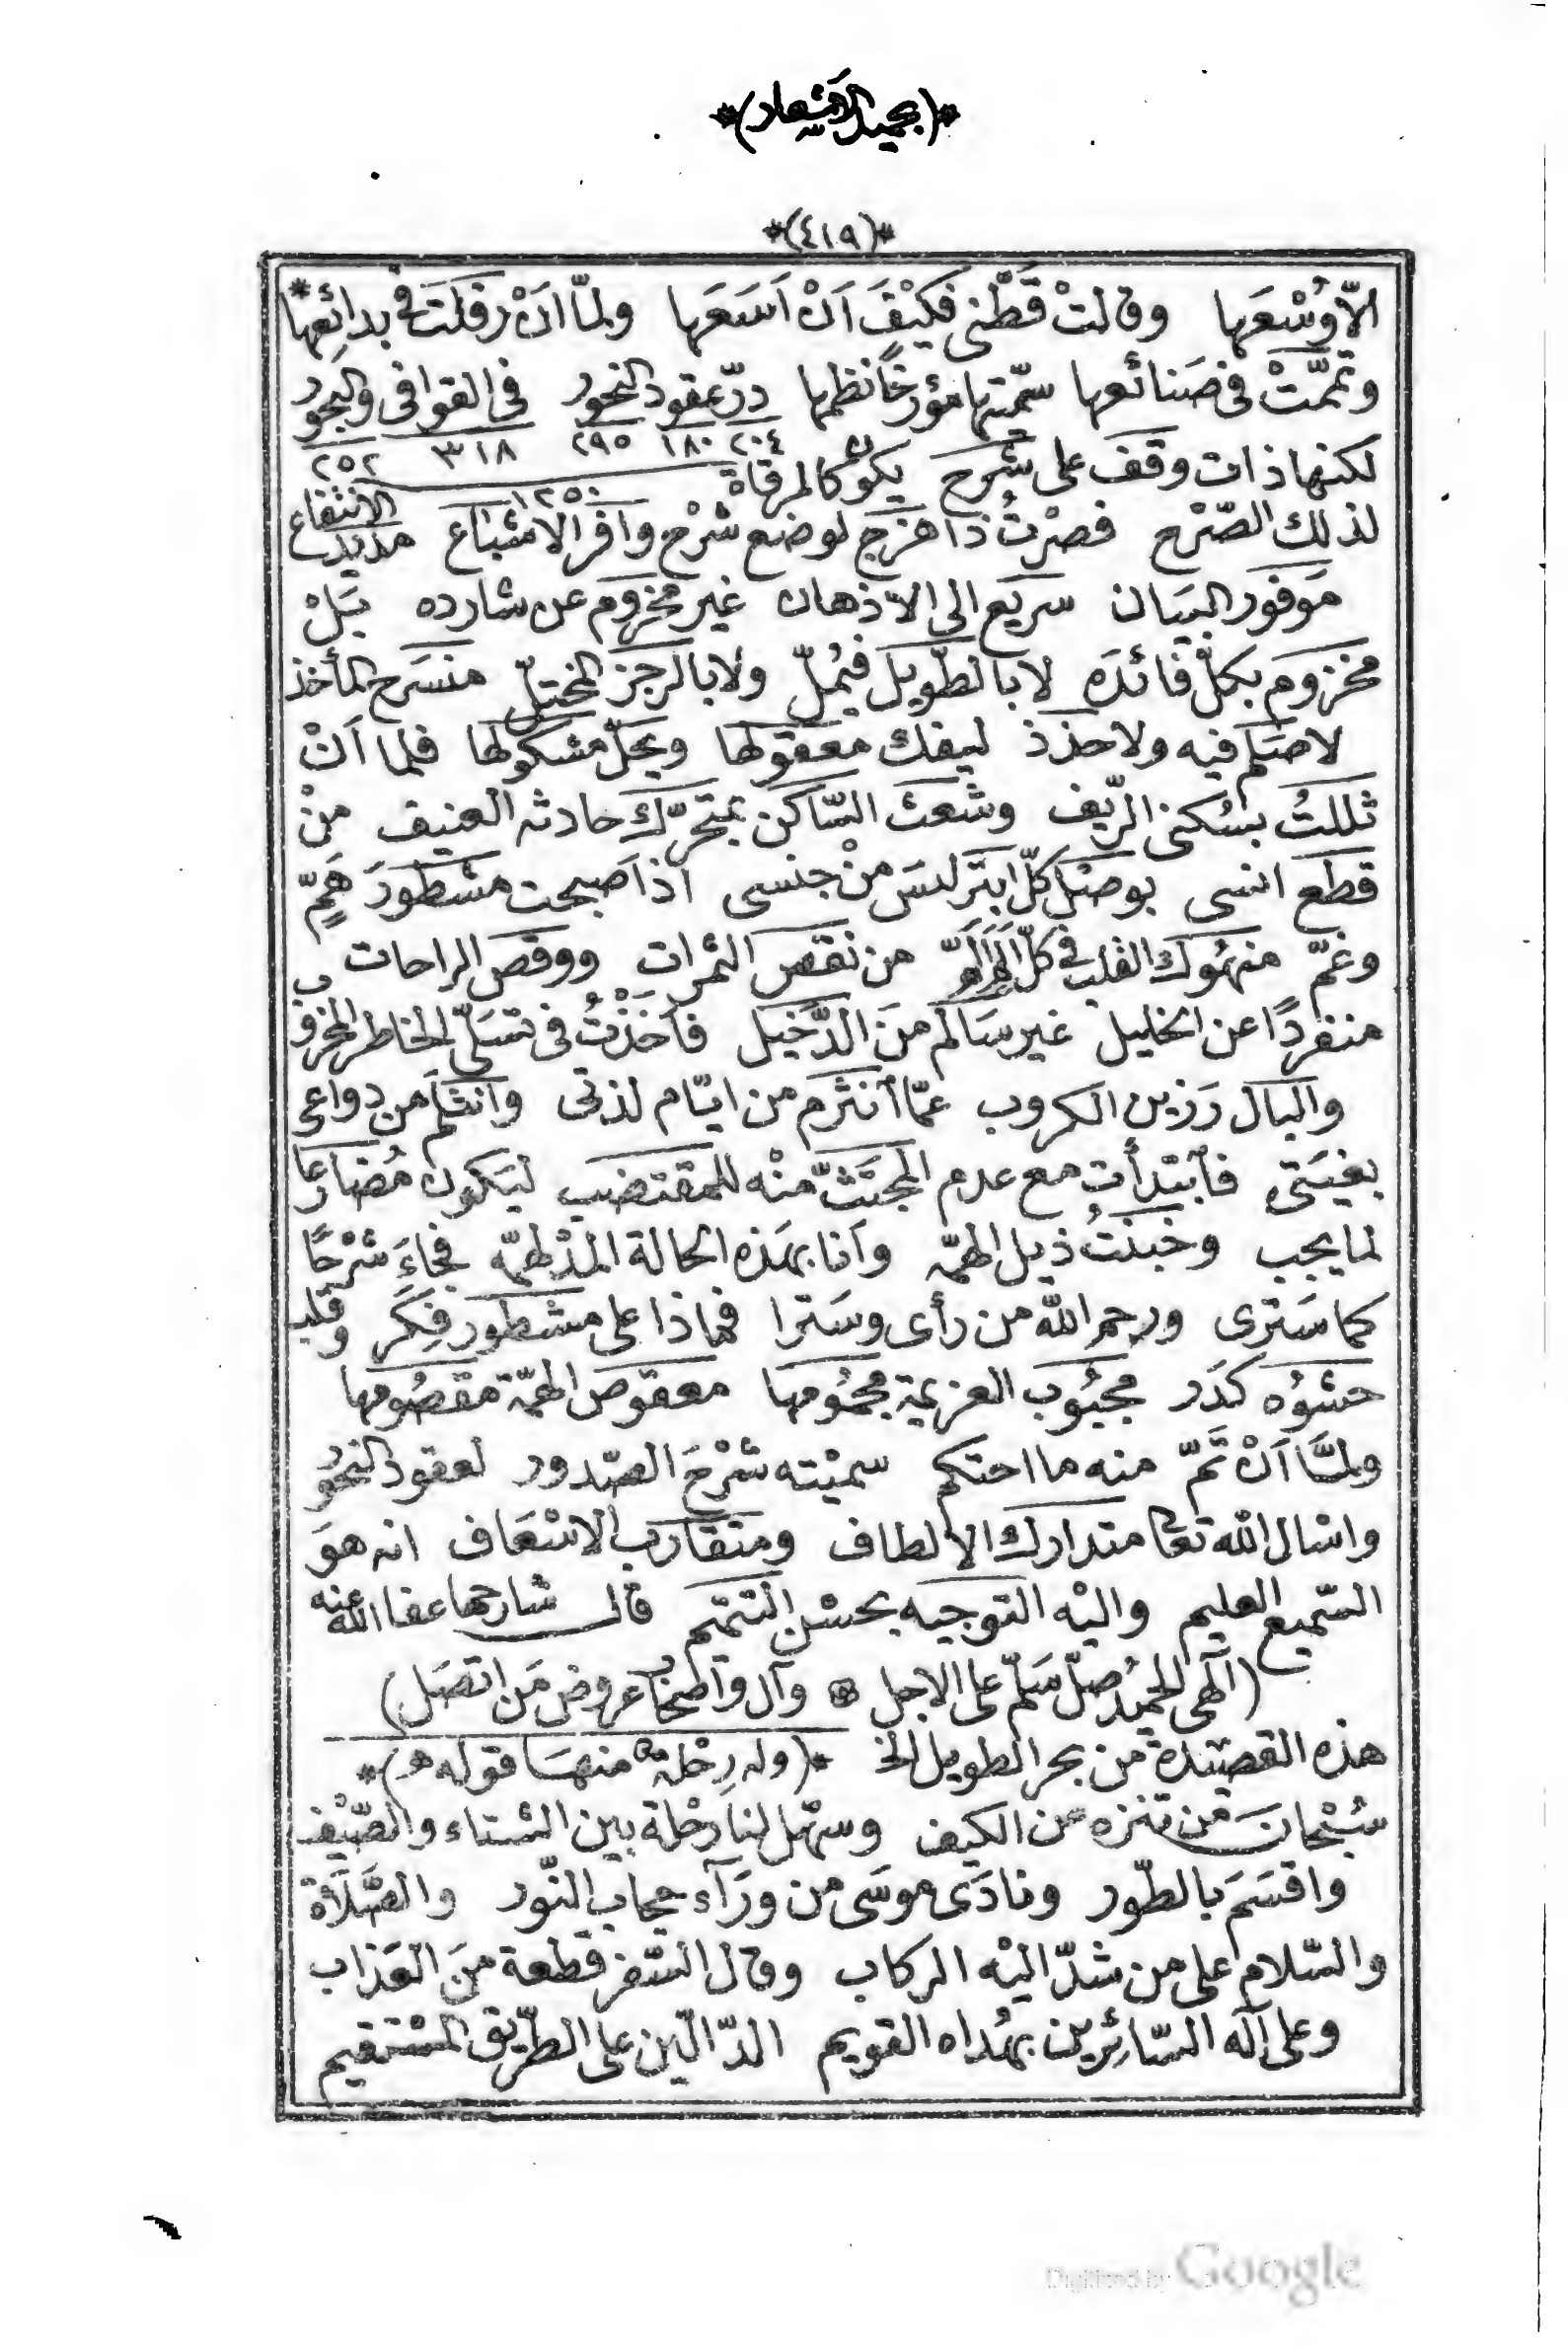 *(بجميل الاشعار)*
*(٤١٩)*
الّا وُسْعَها وقالتْ قَطْنى فكَيْفَ اَنْ اَسَعَها ولمّا اَنْ رفلَتَ فى بدائِعِها *
وتمَّتْ فى صَنائعها سمّيتها مؤرخًا نظمها درّ عقود النحور فى القوافى والبحور
٢٠٤ ١٨٠ ٢٩٥ ٣١٨ ٢٥٢
لكنها ذات وقَف على شَرح يكوُن كالمرقاة
١٢٥٠
لذلك الصّرْح فصْرتُ ذا هَزَج لوضع شْرح وافر الاشباع مديد الانتفاع
مَوفور البيَان سريع الى الاذهان غير مخروم عن شارده بَلْ
مخزوم بكلّ فائدَه لا بالطّويل فيُملّ ولا بالرجز المختلّ منسَرح المأخذ
لا صَلم فيه ولا حذذ ليفك معقولها ويحلّ مشكولها فلما اَنْ
ثللتُ بسُكنى الرّيف وشَعثَ السّاكن بمتحرّك حادثه العنيف منْ
قطع انسى بوصَل كلّ ابتَر ليسَ منْ جنسى اذا صبحت مشطورَ هَمٍّ
وغمّ منهوُك القلب فى كلّ من نقص الثمرات ووقص الراحات
منفردًا عن الخليل غير سَالم منَ الدَّخيل فاَخذْتُ فى تسَلّى الخاطر المخروب
والبال رَزين الكروب عمّا انثرم من ايّام لذتى وانثلَم من دواعى
بغيتَى فابتدأت مع عدم المجتَثّ منْه للمقتضَب ليَكون مُضارعا
لما يجب وخَبنْتُ ذيل الهمّه واَنا بهَذه الحالة المدْلهمّه فجاءَ شرْحًا
كما سَترى ورحم الله من رأى وسَترا فماذا على مشطور فِكَر وقلب
حشوُه كدَر مجبُوب العزيمة مجمُومها معقوص الهمّة مقصُومها
ولمّا اَنْ تَمّ منه ما احتكم سميْته شرْحَ الصّدور لعقود النحور
واسْال الله تعالى متدارك الالطاف ومتقارب الاسْعَاف انه هوَ
السّميع العليم واليْه التوجيه بحسْن التتميم قال شارحها عفا الله عنه
(اَلهى لك الحمدُ صلّ سَلّم على الاجل وآل واصحاب عروض مَن اتصَل)
هذه القصيْدة من بحر الطويل الخ *(وله رِحْلة منهَا قوله)*
سُبْحانَ من تنزه عن الكيف وسهّل لنا رحْلة بين الشتاء والصّيْف
واقسَمَ بالطّور ونادَى موسَى من ورَآء حجاب النّور والصَّلَاة
والسّلام على من شدّ اليْه الركاب وقال السّفر قطعة منَ العَذاب
وعلى آله السّائِرين بهُداه القويم الدّالّين على الطّريق المسْتقيم
Digitized by Google